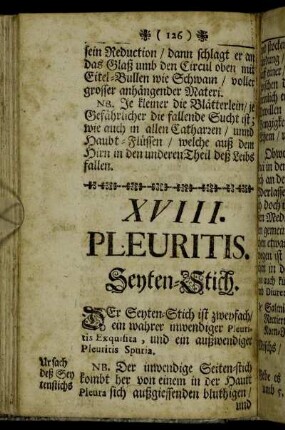 ( 126 )
sein Reduction / dann schlagt er an
das Glaß umb den Circul oben mit
Eitel-Bullen wie Schwam / voller
grosser anhängender Materi.
NB. Je kleiner die Blätterlein / je
Gefährlicher die fallende Sucht ist;
wie auch in allen Catharren / unnd
Haubt-Flüssen / welche auß dem
Hirn in den underen Theil deß Leibs
fallen.
XVIII.
PLEURITIS.
Seyten-Stich.
DEr Seyten-Stich ist zweyfach /
ein wahrer inwendiger Pleuri-
tis Exquisita, und ein außwendiger
Pleuritis Spuria.
Ursach
deß Sey
tenstichs
NB. Der inwendige Seiten-stich
kombt her von einem in der Haut
Pleura sich außgiessenden bluthigen /
und